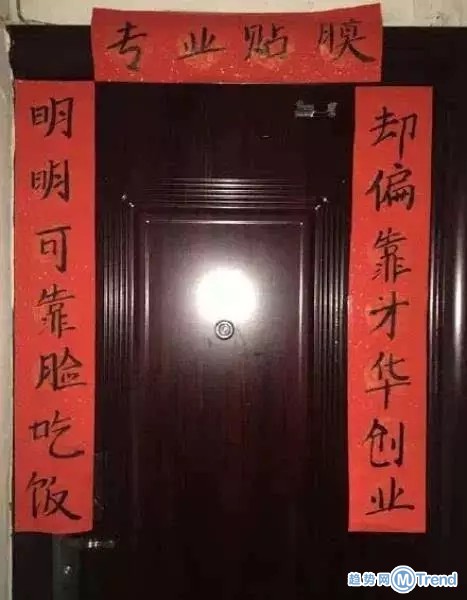 专业贴膜
明明可靠脸吃饭
却偏靠才华创业
趋势网 MTrend